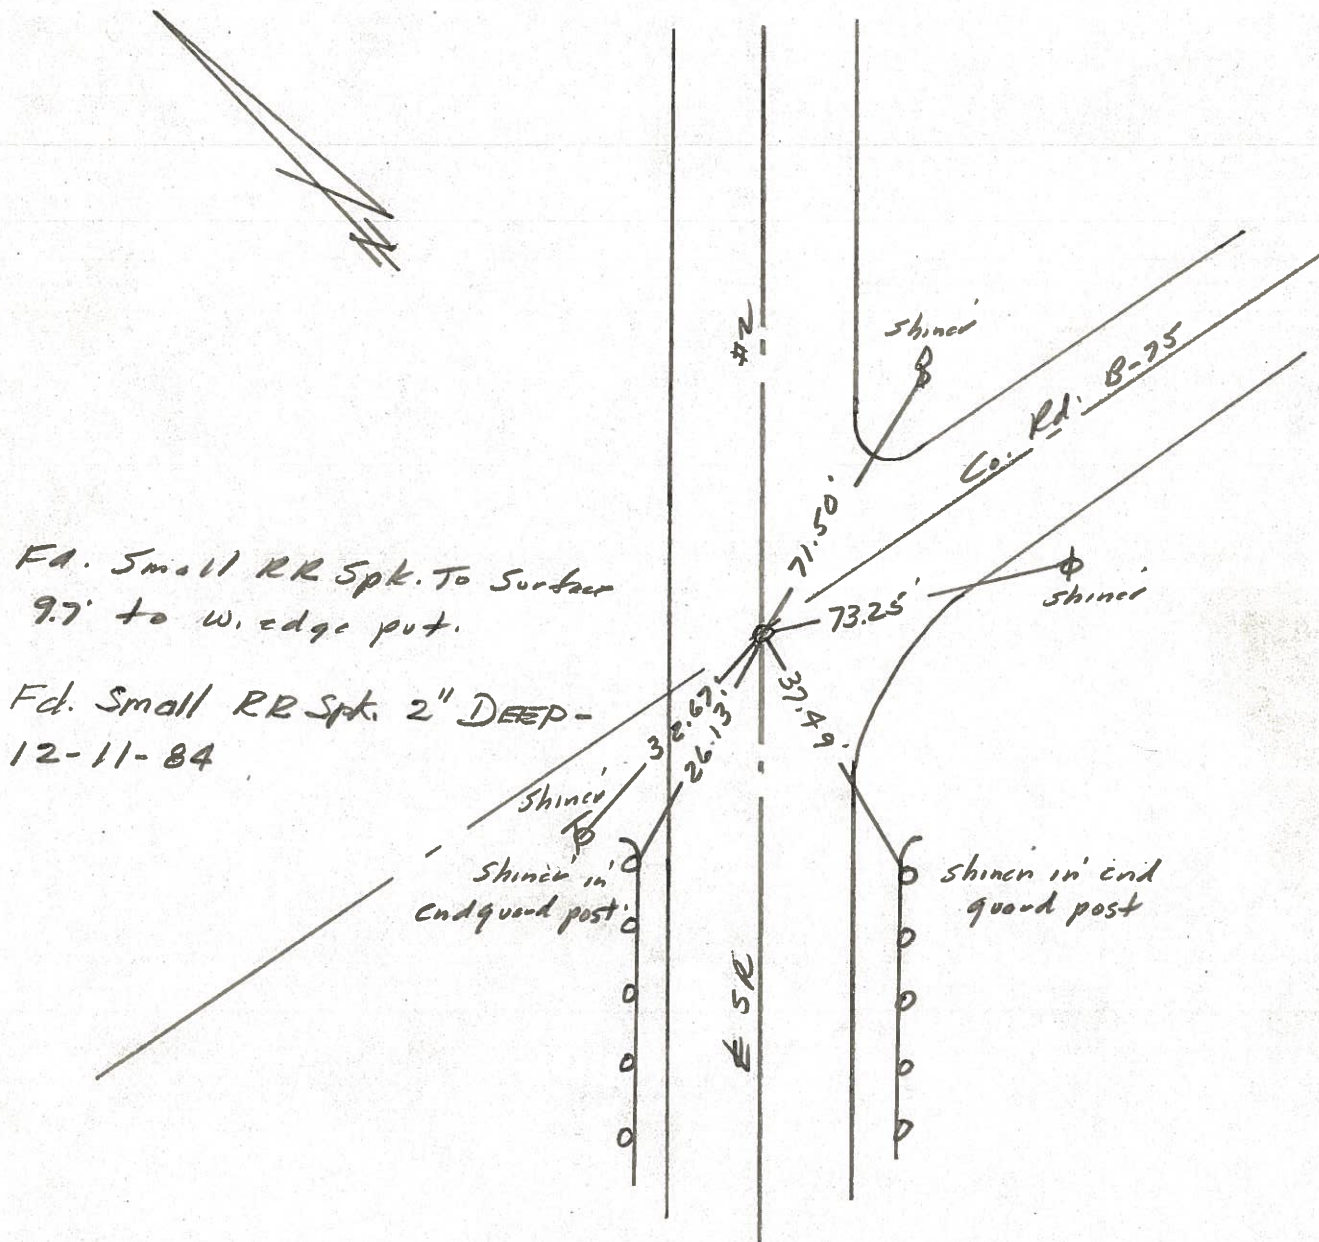 #2
shiner
Co. Rd. B-75
71.50'
Fd. Small RR Spk. To Surface
9.7' to W. edge pvt.
73.25'
shiner
Fd. Small RR Spk. 2" DEEP-
12-11-84
32.67'
26.13'
37.49'
shiner
shiner in
end guard post
shiner in end
guard post
℄ SR